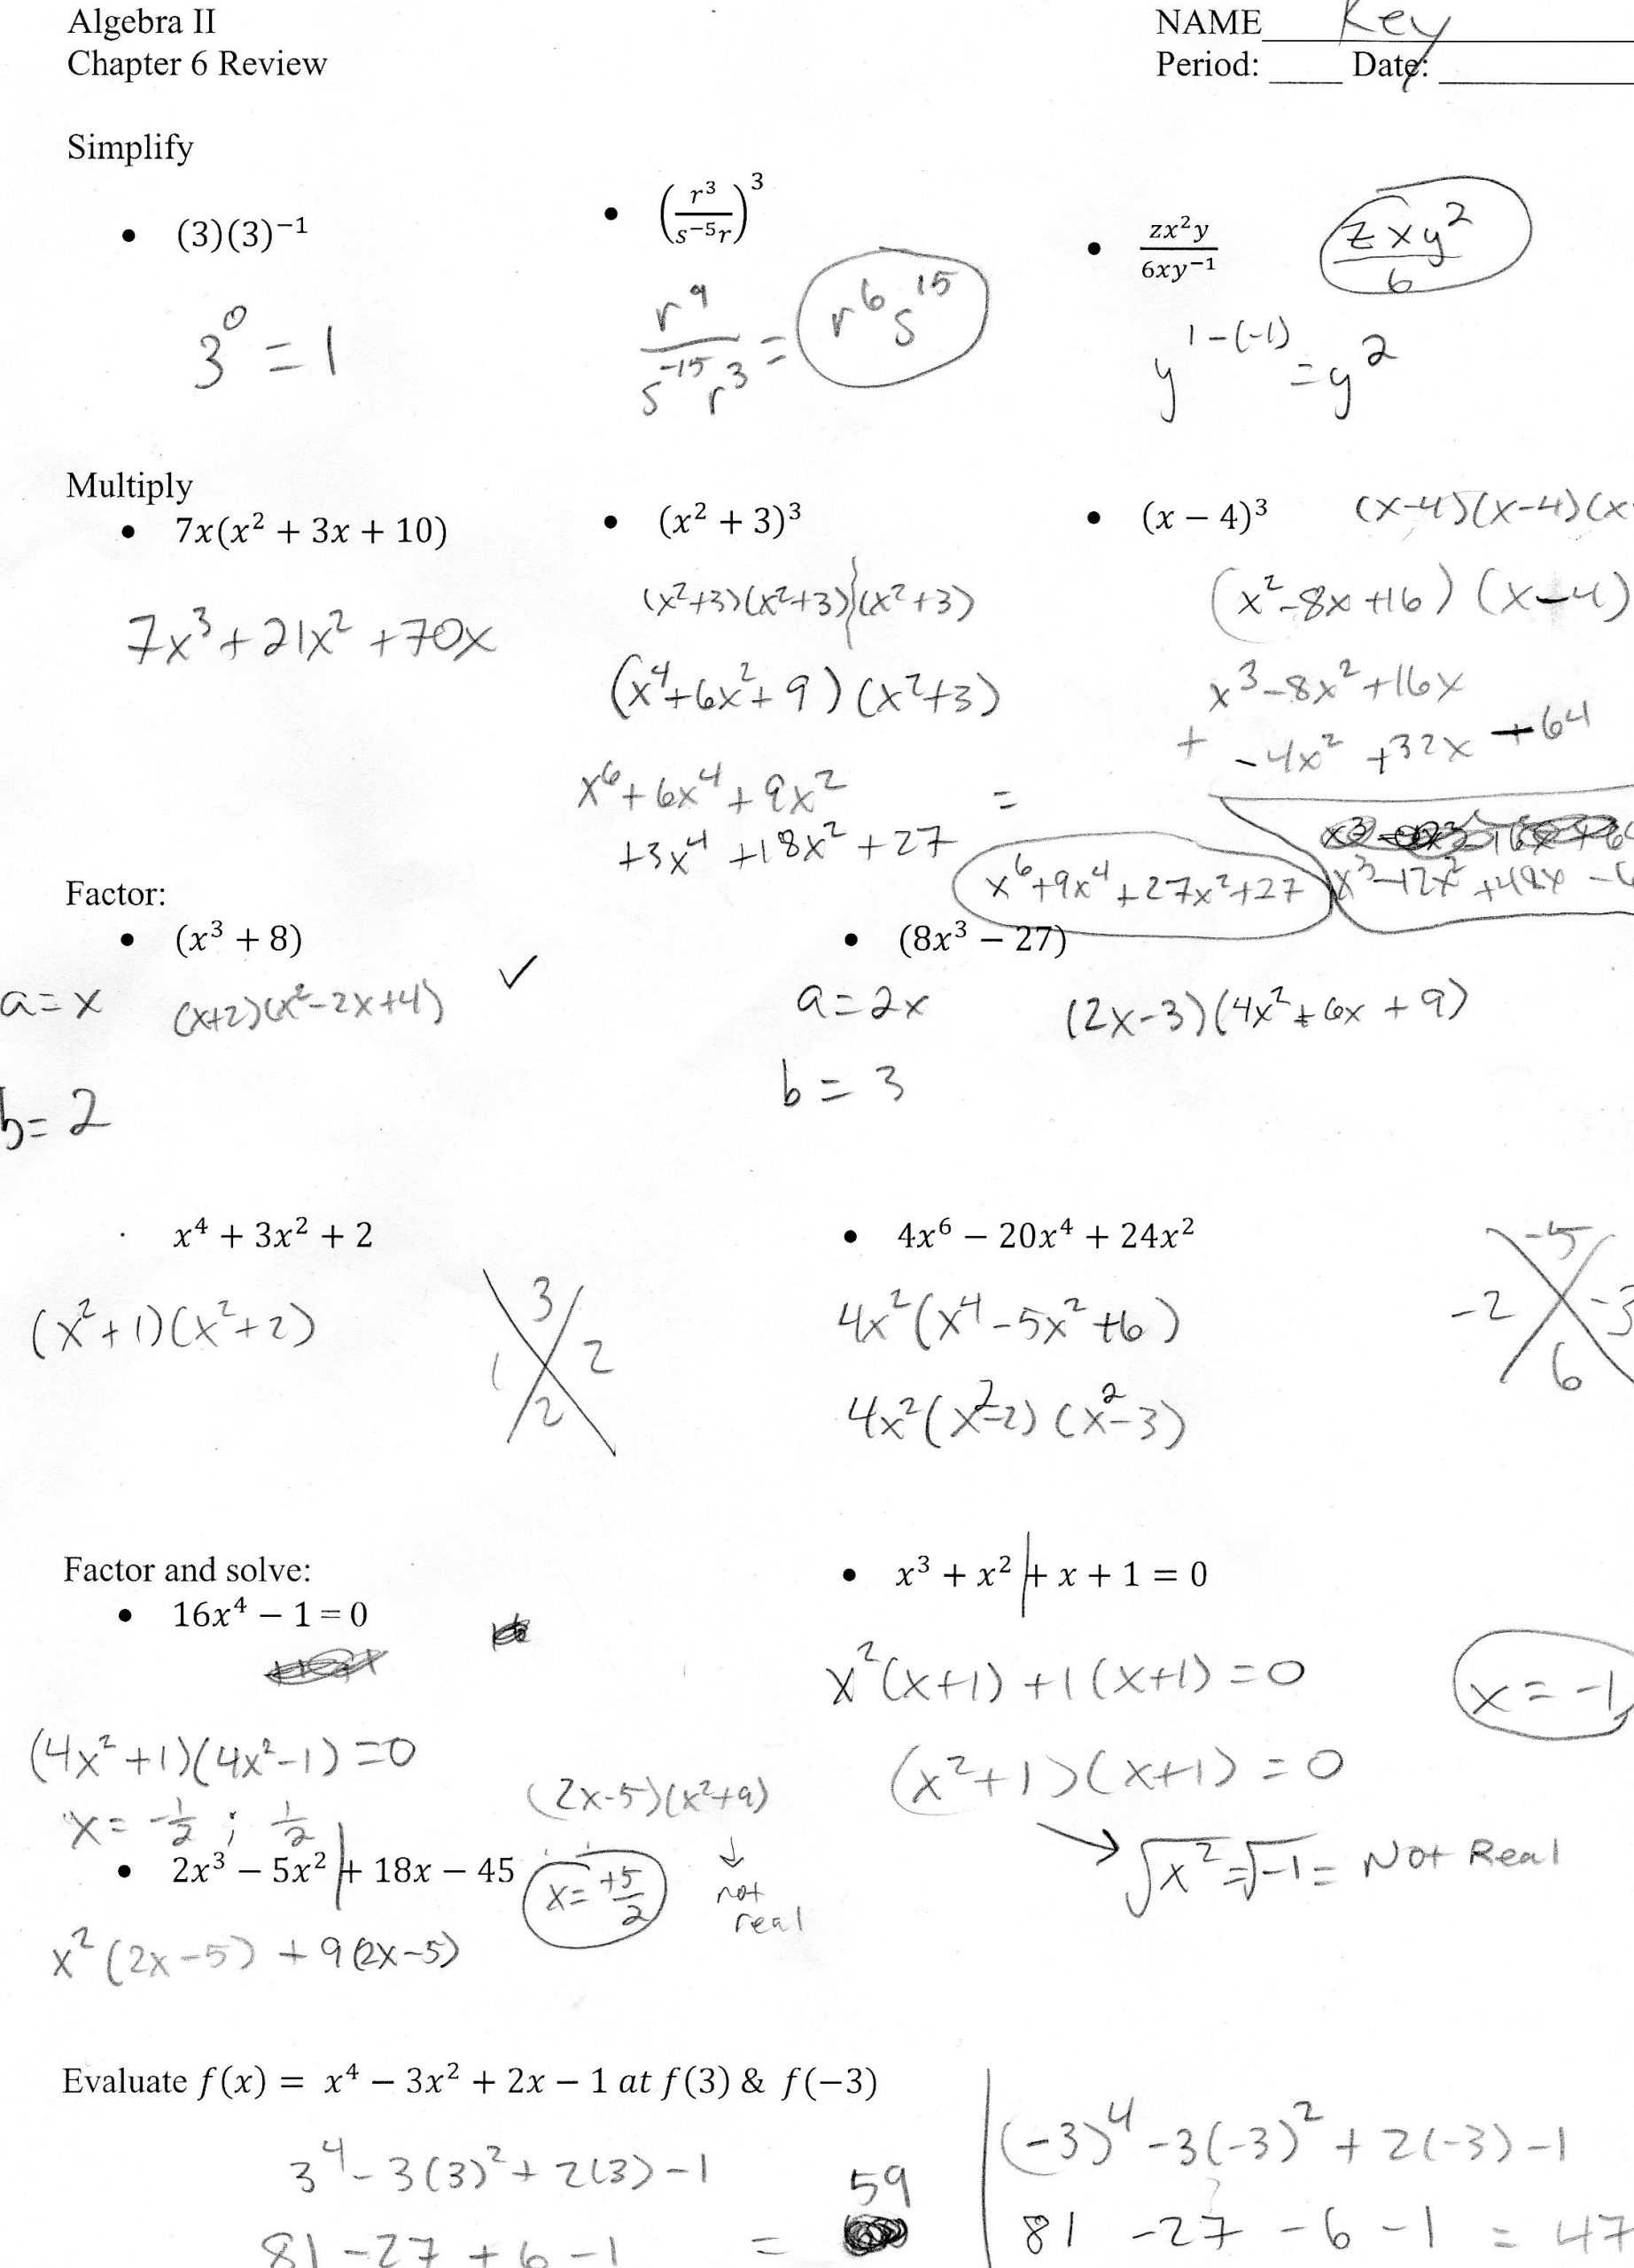 Algebra II
NAME Key
Chapter 6 Review
Period: ____ Date: ____
Simplify
• (3)(3)⁻¹
3⁰ = 1
• (r³/(s⁻⁵r))³
r⁹/(s⁻¹⁵r³) = r⁶s¹⁵
• zx²y/(6xy⁻¹)
zxy²/6
y¹⁻⁽⁻¹⁾ = y²
Multiply
• 7x(x² + 3x + 10)
7x³ + 21x² + 70x
• (x² + 3)³
(x²+3)(x²+3)(x²+3)
(x⁴+6x²+9)(x²+3)
x⁶+6x⁴+9x²
+3x⁴ +18x² +27 =
x⁶+9x⁴+27x²+27
• (x − 4)³
(x-4)(x-4)(x
(x²-8x+16)(x-4)
x³-8x²+16x
+ -4x² +32x -64
x³-12x²+48x -6
Factor:
• (x³ + 8)
a=x (x+2)(x²-2x+4) ✓
b=2
• (8x³ − 27)
a=2x (2x-3)(4x²+6x+9)
b = 3
· x⁴ + 3x² + 2
(x²+1)(x²+2)
3
1 2
2
• 4x⁶ − 20x⁴ + 24x²
4x²(x⁴-5x²+6)
4x²(x²-2)(x²-3)
-5
-2 -3
6
Factor and solve:
• 16x⁴ − 1 = 0
(4x²+1)(4x²-1)=0
x = -1/2 ; 1/2
• x³ + x² + x + 1 = 0
x²(x+1)+1(x+1)=0
x = -1
(x²+1)(x+1)=0
→ √x² = √-1 = Not Real
• 2x³ − 5x² + 18x − 45
(2x-5)(x²+9)
x = +5/2
↓
not
real
x²(2x-5) + 9(2x-5)
Evaluate f(x) = x⁴ − 3x² + 2x − 1 at f(3) & f(−3)
3⁴ - 3(3)² + 2(3) - 1
81 - 27 + 6 - 1 = 59
(-3)⁴ - 3(-3)² + 2(-3) - 1
81 - 27 - 6 - 1 = 47